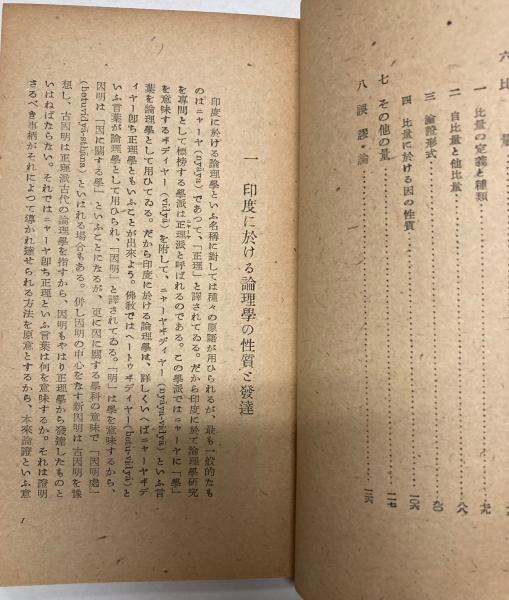 六 比量
一 比量の定義と種類
二 自比量と他比量
三 論證形式
四 比量に於ける因の性質
七 その他の量
八 誤謬論
一 印度に於ける論理學の性質と發達
印度に於ける論理學といふ名稱に對しては種々の原語が用ひられるが、最も一般的なも
のはニャーヤ(nyāya)であつて、「正理」と譯されてゐる。だから印度に於て論理學研究
を專門として標榜する學派は正理派と呼ばれるのである。この學派ではニャーヤに「學」
を意味するヰディヤー(vidyā)を附して、ニャーヤヰディヤー(nyāya-vidyā)といふ言
葉を論理學として用ひてゐる。だから印度に於ける論理學は、詳しくいへばニャーヤヰデ
ィヤー卽ち正理學ともいふことが出來よう。佛敎ではヘートゥヰディヤー(hetu-vidyā)と
いふ言葉が論理學として用ひられ、「因明」と譯されてゐる。「明」は學を意味するから、
因明は「因に關する學」といふことになるが、更に因に關する學科の意味で「因明處」
(hetuvidyā-sthāna)といはれる場合もある。併し因明の中心をなす新因明は古因明を豫
想し、古因明は正理派古代の論理學を指すから、因明もやはり正理學から發達したものと
いはねばならない。それではニャーヤ卽ち正理といふ言葉は何を意味するか。それは證明
さるべき事柄がそれによつて導かれ達せられる方法を原意とするから、本來論證といふ意
1